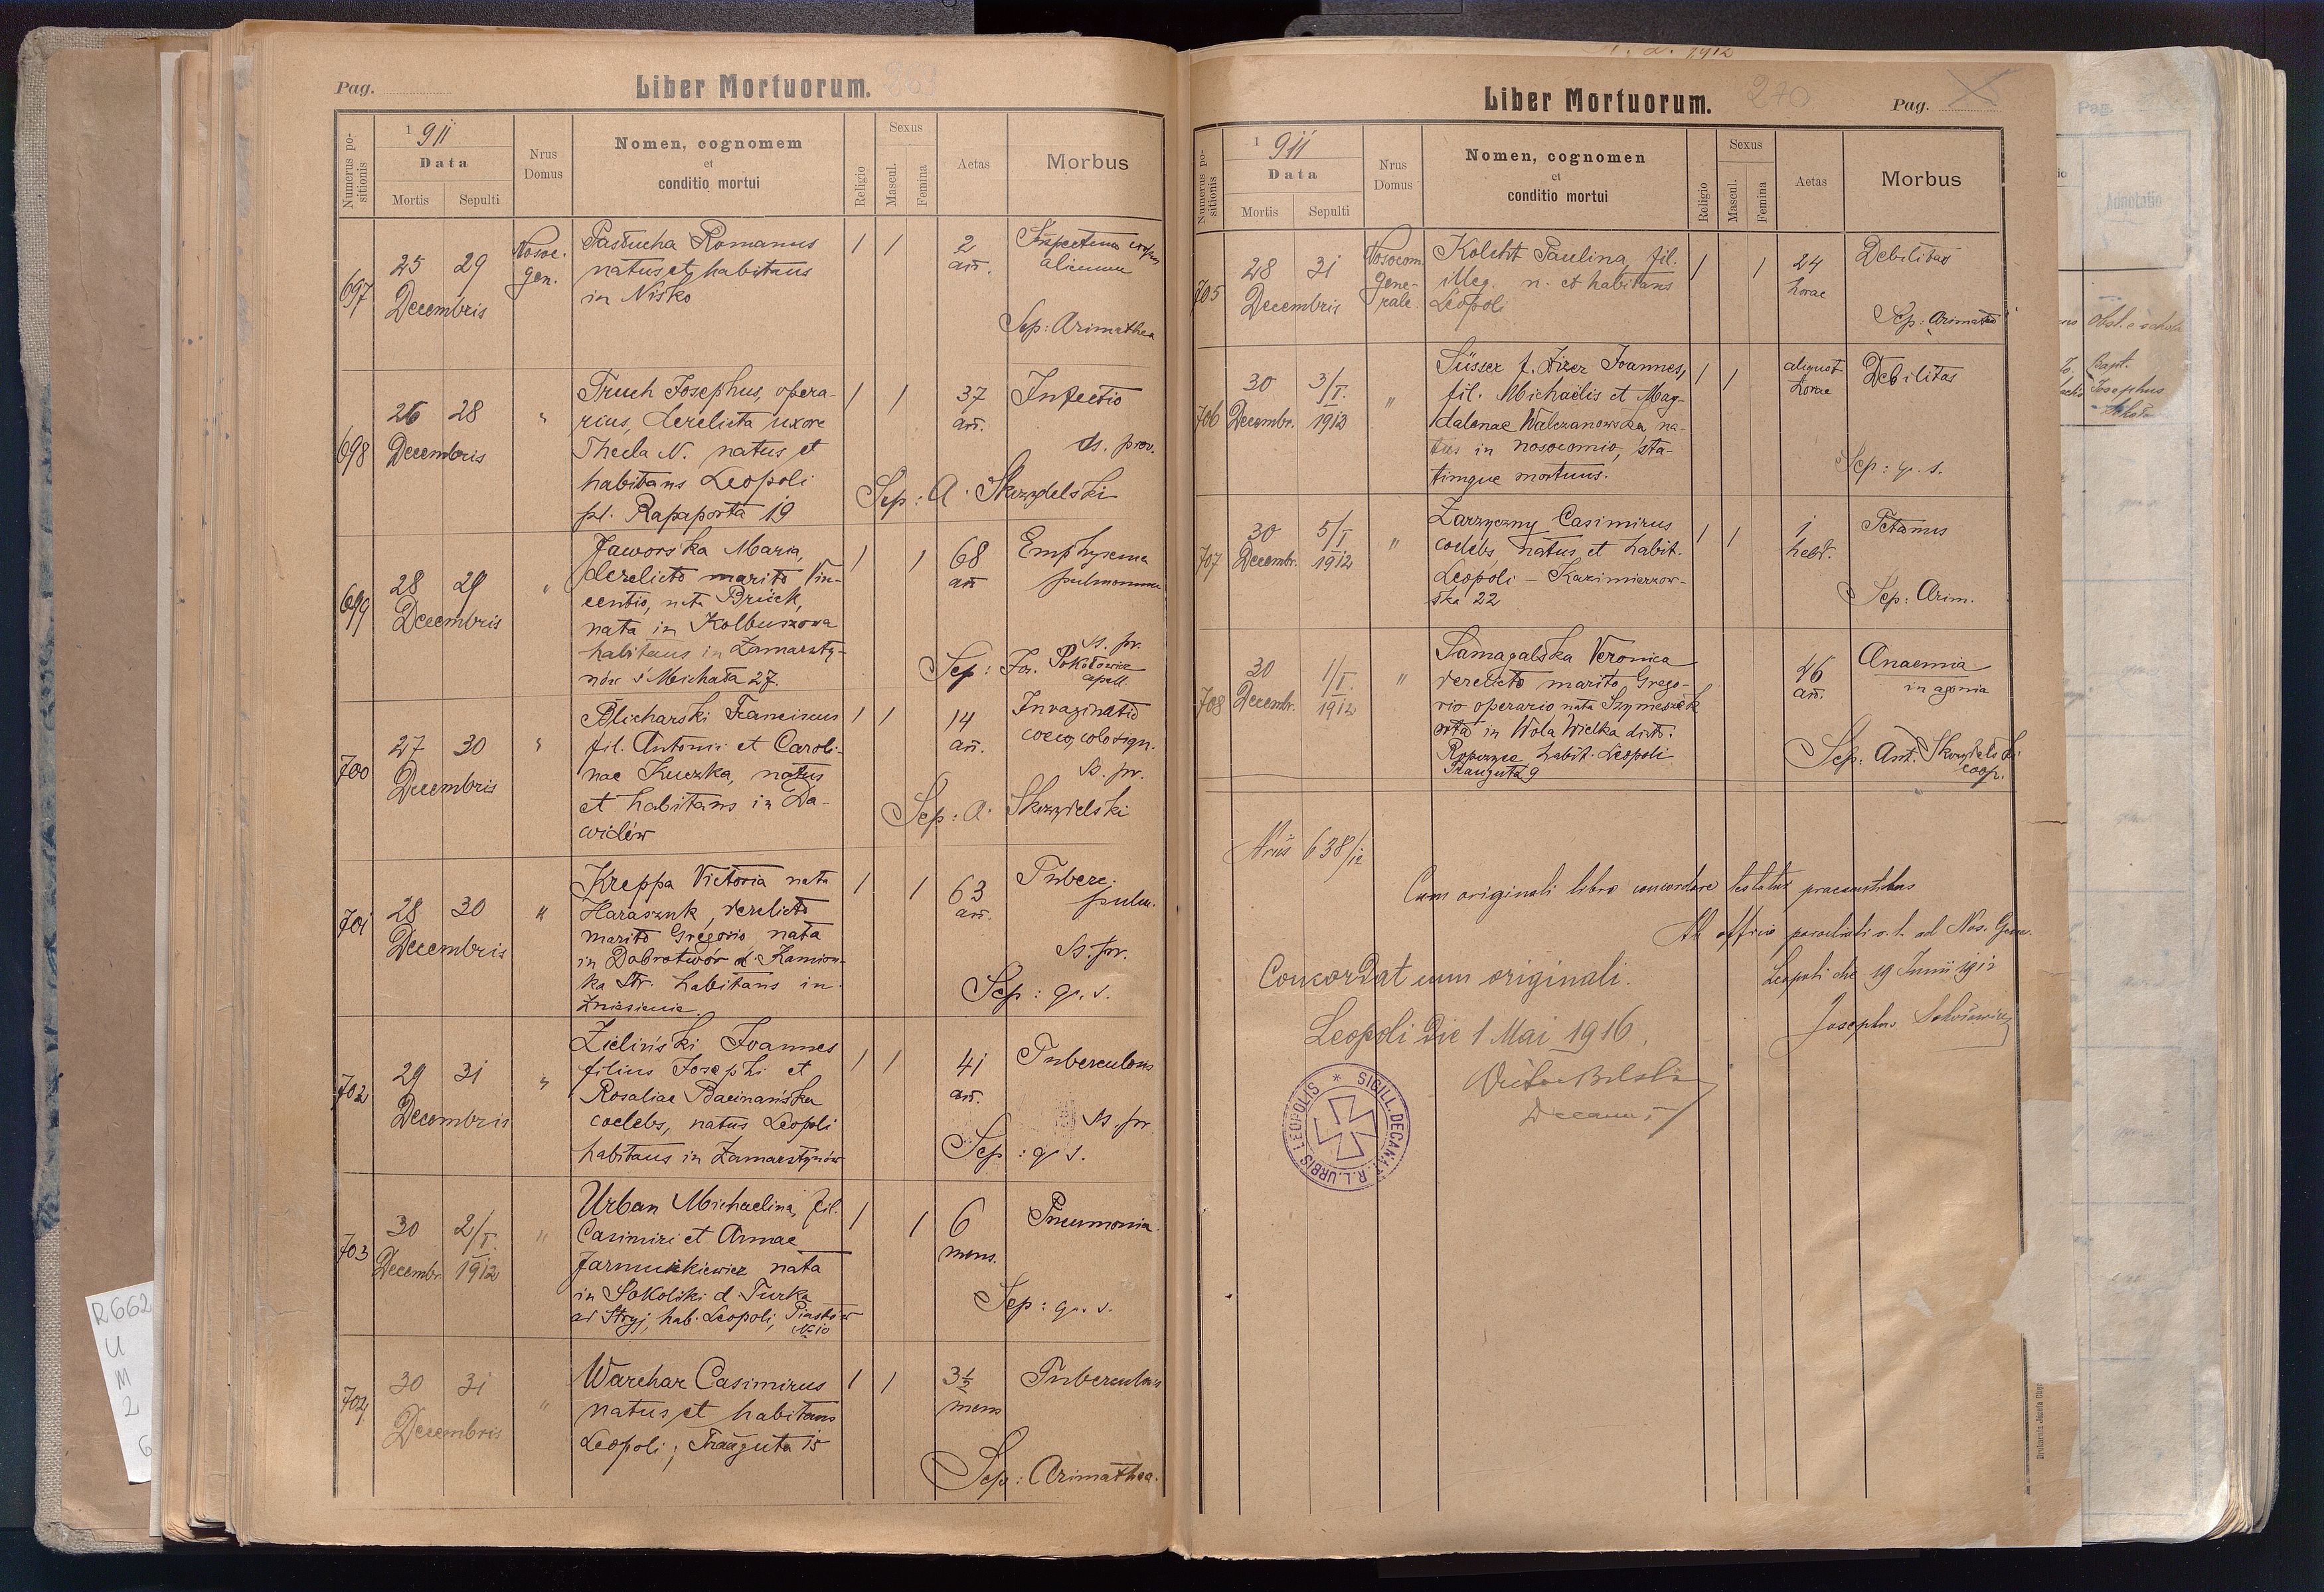 Pag.
Liber Mortuorum.
Numerus positionis
1911
Data
Mortis
Sepulti
Nrus
Domus
Nomen, cognomem
et
conditio mortui
Religio
Sexus
Mascul.
Femina
Aetas
Morbus
697
25 29
Decembris
Nosoc.
gen.
Pastucha Romanus
natus et habitans
in Nisko
1 1
2
añ.
corpus
alienum
Sep: Arimathea
698
26 28
Decembris
"
Truch Josephus, opera-
rius, derelicta uxore
Thecla N. natus et
habitans Leopoli
pl. Rapaporta 19
1 1
37
añ.
Infectio
ss. prov.
Sep: A. Skrzydelski
699
28 29
Decembris
"
Jaworska Maria,
derelicto marito Vin-
centio, nata Brück,
nata in Kolbuszowa
habitans in Zamarsty-
nów ś Michała 27.
1 1
68
añ
Emphysema
pulmonum
ss. pr.
Sep: Jos. Sokołowicz
capell.
700
27 30
Decembris
"
Blicharski Franciscus
fil. Antonii et Caroli-
nae Kuczka, natus
et habitans in Da-
widów
1 1
14
añ.
Invaginatio
coeco, colo sign.
ss. pr.
Sep: A. Skrzydelski
701
28 30
Decembris
"
Kreppa Victoria nata
Haraszuk, derelicto
marito Gregorio nata
in Dobrotwór d. Kamion-
ka Str. habitans in
Zniesienie.
1 1
63
añ.
Tuberc.
pulm.
ss. pr.
Sep: q. s.
702
29 31
Decembris
"
Zieliński Joannes
filius Josephi et
Rosaliae
coelebs, natus Leopoli
habitans in Zamarstynów
1 1
41
añ.
Tuberculosis
ss. pr.
Sep: q. s.
703
30 2/I.
Decembr. 1912
"
Urban Michaelina, fil.
Casimiri et Annae
nata
in Sokoliki d. Turka
ad Stryj, hab. Leopoli, Piastów
№ 10
1 1
6
mens.
Pneumonia.
Sep: q. s.
704
30 31
Decembris
"
Warchar Casimirus
natus et habitans
Leopoli, Trauguta 15
1 1
3½
mens
Tuberculosis
Sep: Arimathea.
Liber Mortuorum.
270
Pag.
Numerus positionis
1911
Data
Mortis
Sepulti
Nrus
Domus
Nomen, cognomen
et
conditio mortui
Religio
Sexus
Mascul.
Femina
Aetas
Morbus
705
28 31
Decembris
Nosocom.
gene-
rale.
Kolcht Paulina, fil.
illeg. n. et habitans
Leopoli
1 1
24
horae
Debilitas
Sep: Arimathea
706
30 3/I.
Decembr. 1912
"
Süsser f. Dizer Joannes,
fil. Michaëlis et Mag-
dalenae Walczanowska, na-
tus in nosocomio, sta-
timque mortuus.
1 1
aliquot
horae
Debilitas
Sep: q. s.
707
30 5/I
Decembr. 1912
"
Zarzyczny Casimirus
coelebs natus et habit.
Leopoli – Kazimierzow-
ska 22
1 1
1
hebd.
Tetanus
Sep: Arim.
708
30 1/I.
Decembr. 1912
"
Samagalska Veronica
derelicto marito Grego-
rio operario nata
orta in Wola Wielka distr.
Ropczyce habit. Leopoli
Trauguta 9
46
añ.
Anaemia
in agonia
Sep: Ant. Skrzydelski
coop.
Nrus 638/12
Cum originali libro concordare testatur praesentibus
Ab officio parochiali r. l. ad Nos. Gen.
Leopoli die 19 Junii 1912
Josephus Sokołowicz
Concordat cum originali.
Leopoli die 1 Mai 1916.
Decanus
SIGILL. DECANAT. R. L. URBIS LEOPOLIS *
Pag.
Adnotatio
Bapt.
Josephus
Drukarnia Józefa Chęc
R 662
U
M
2
6